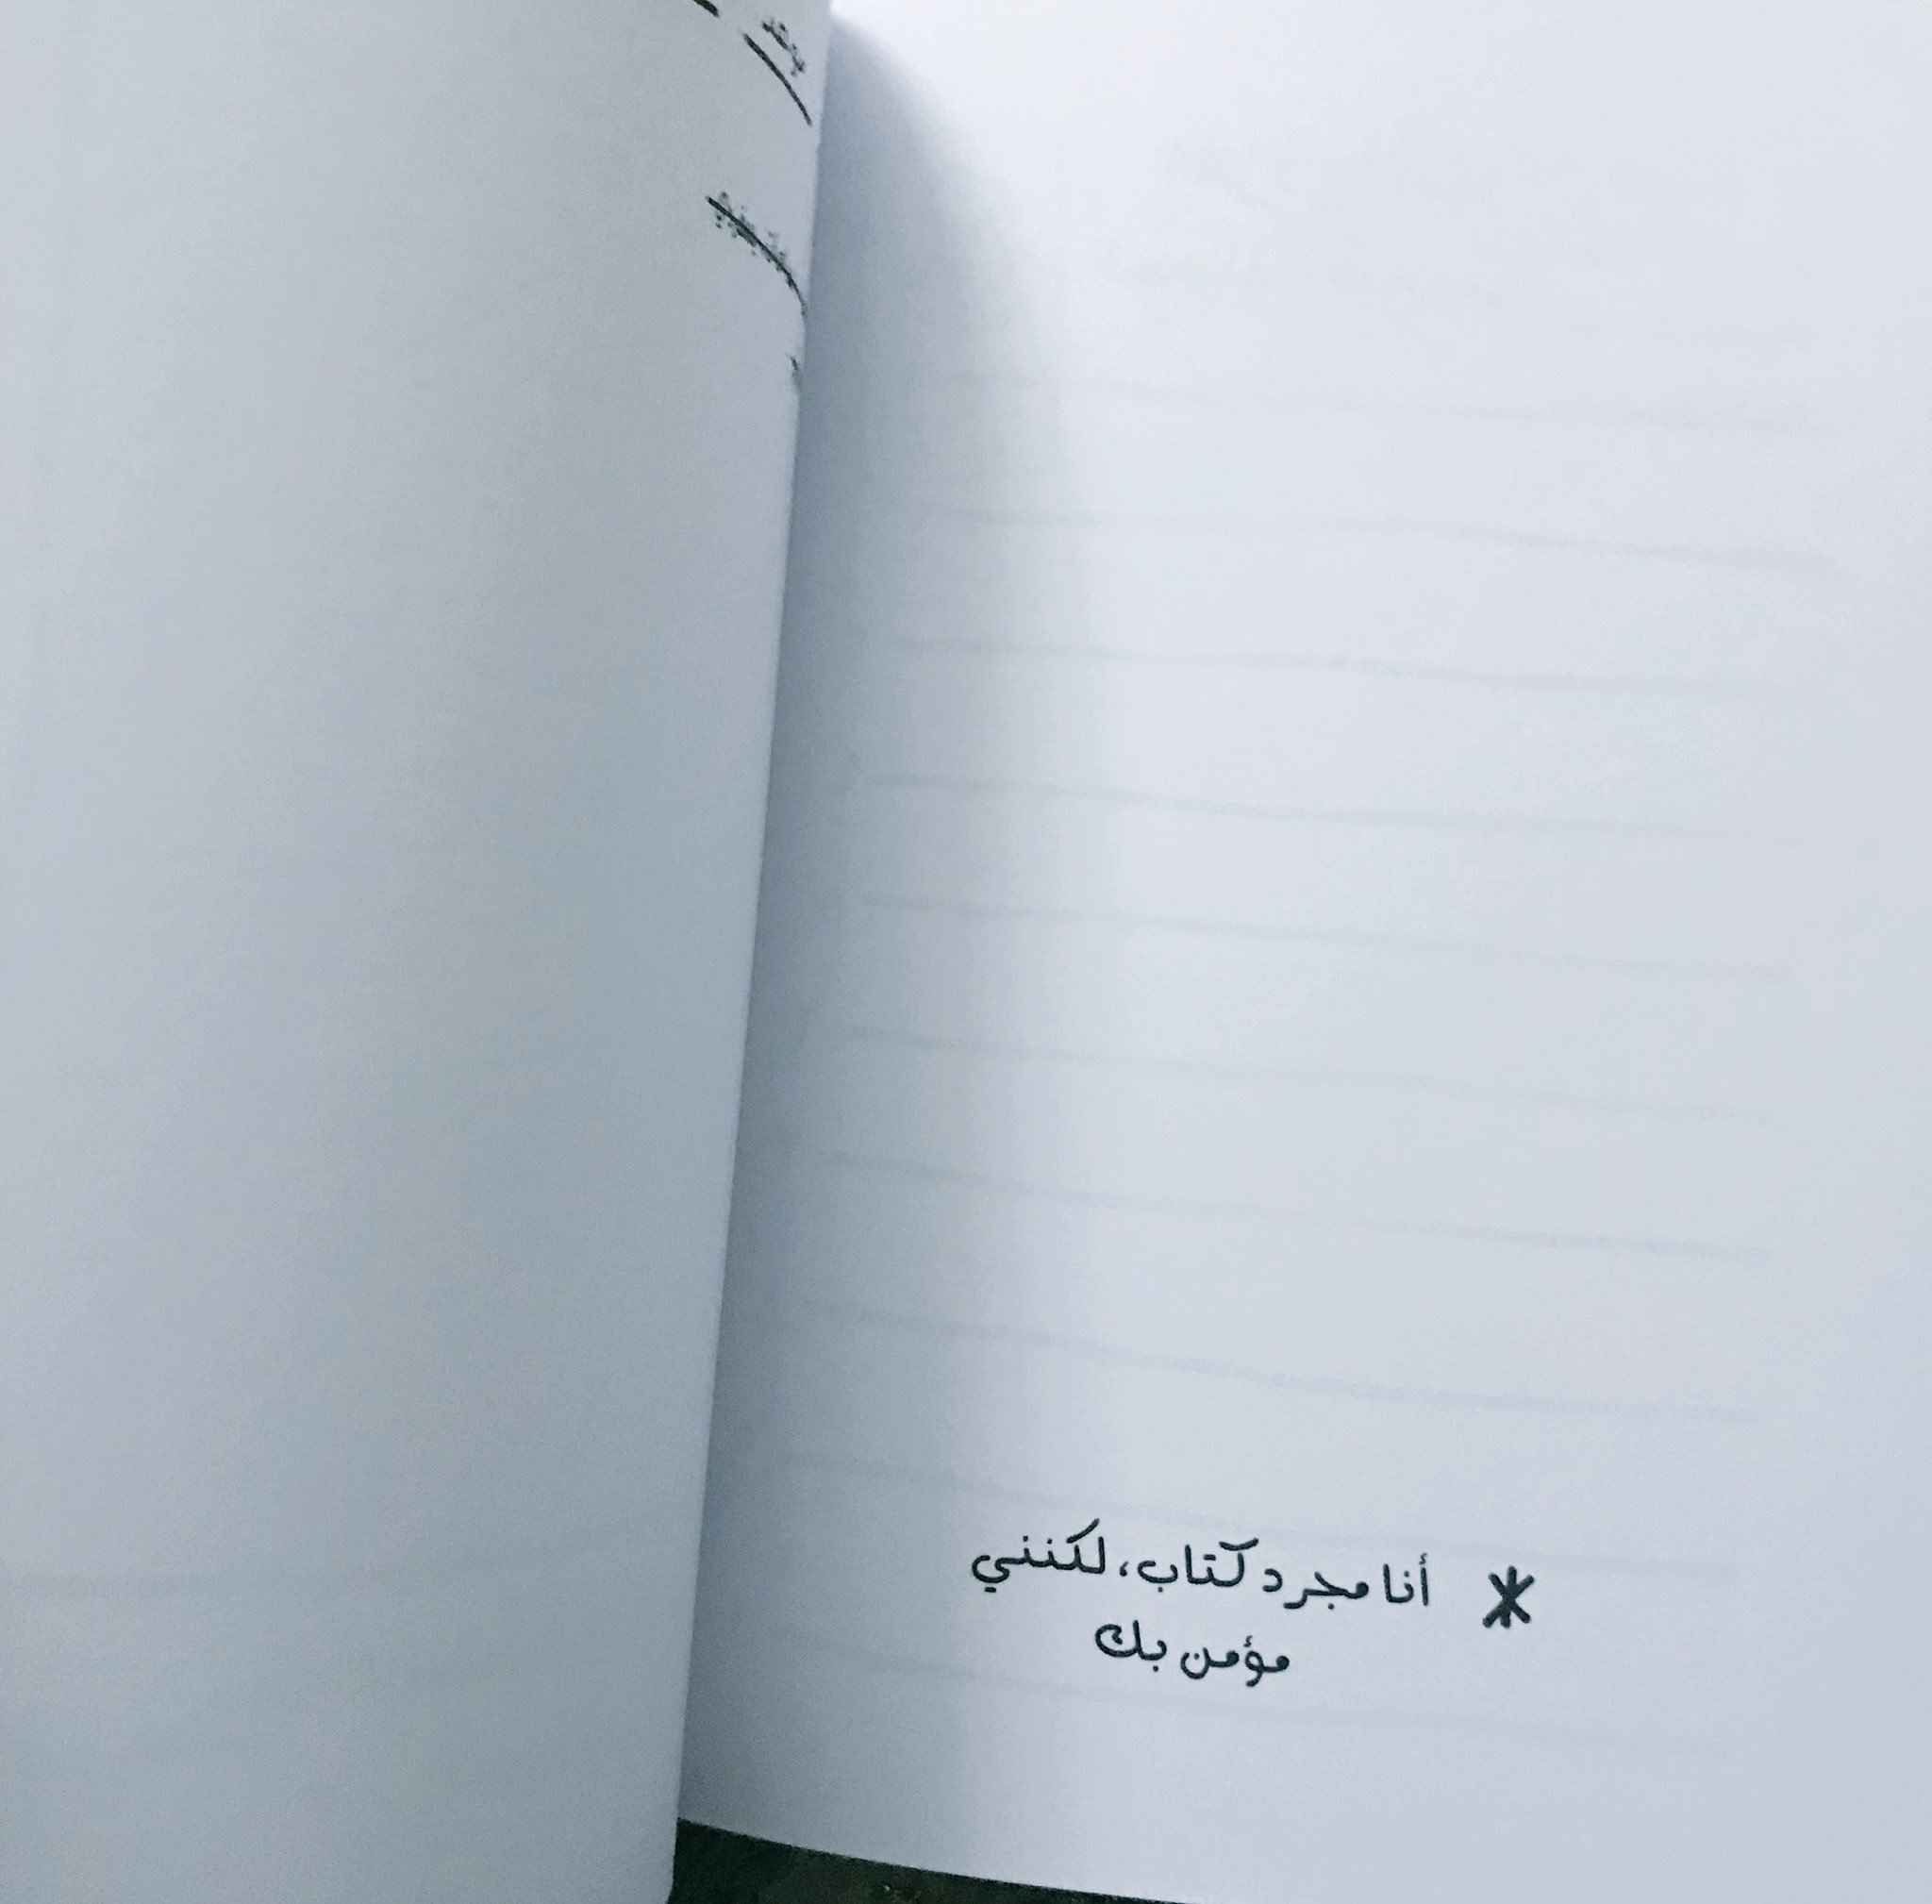 * أنا مجرد كتاب، لكنني
مؤمن بك